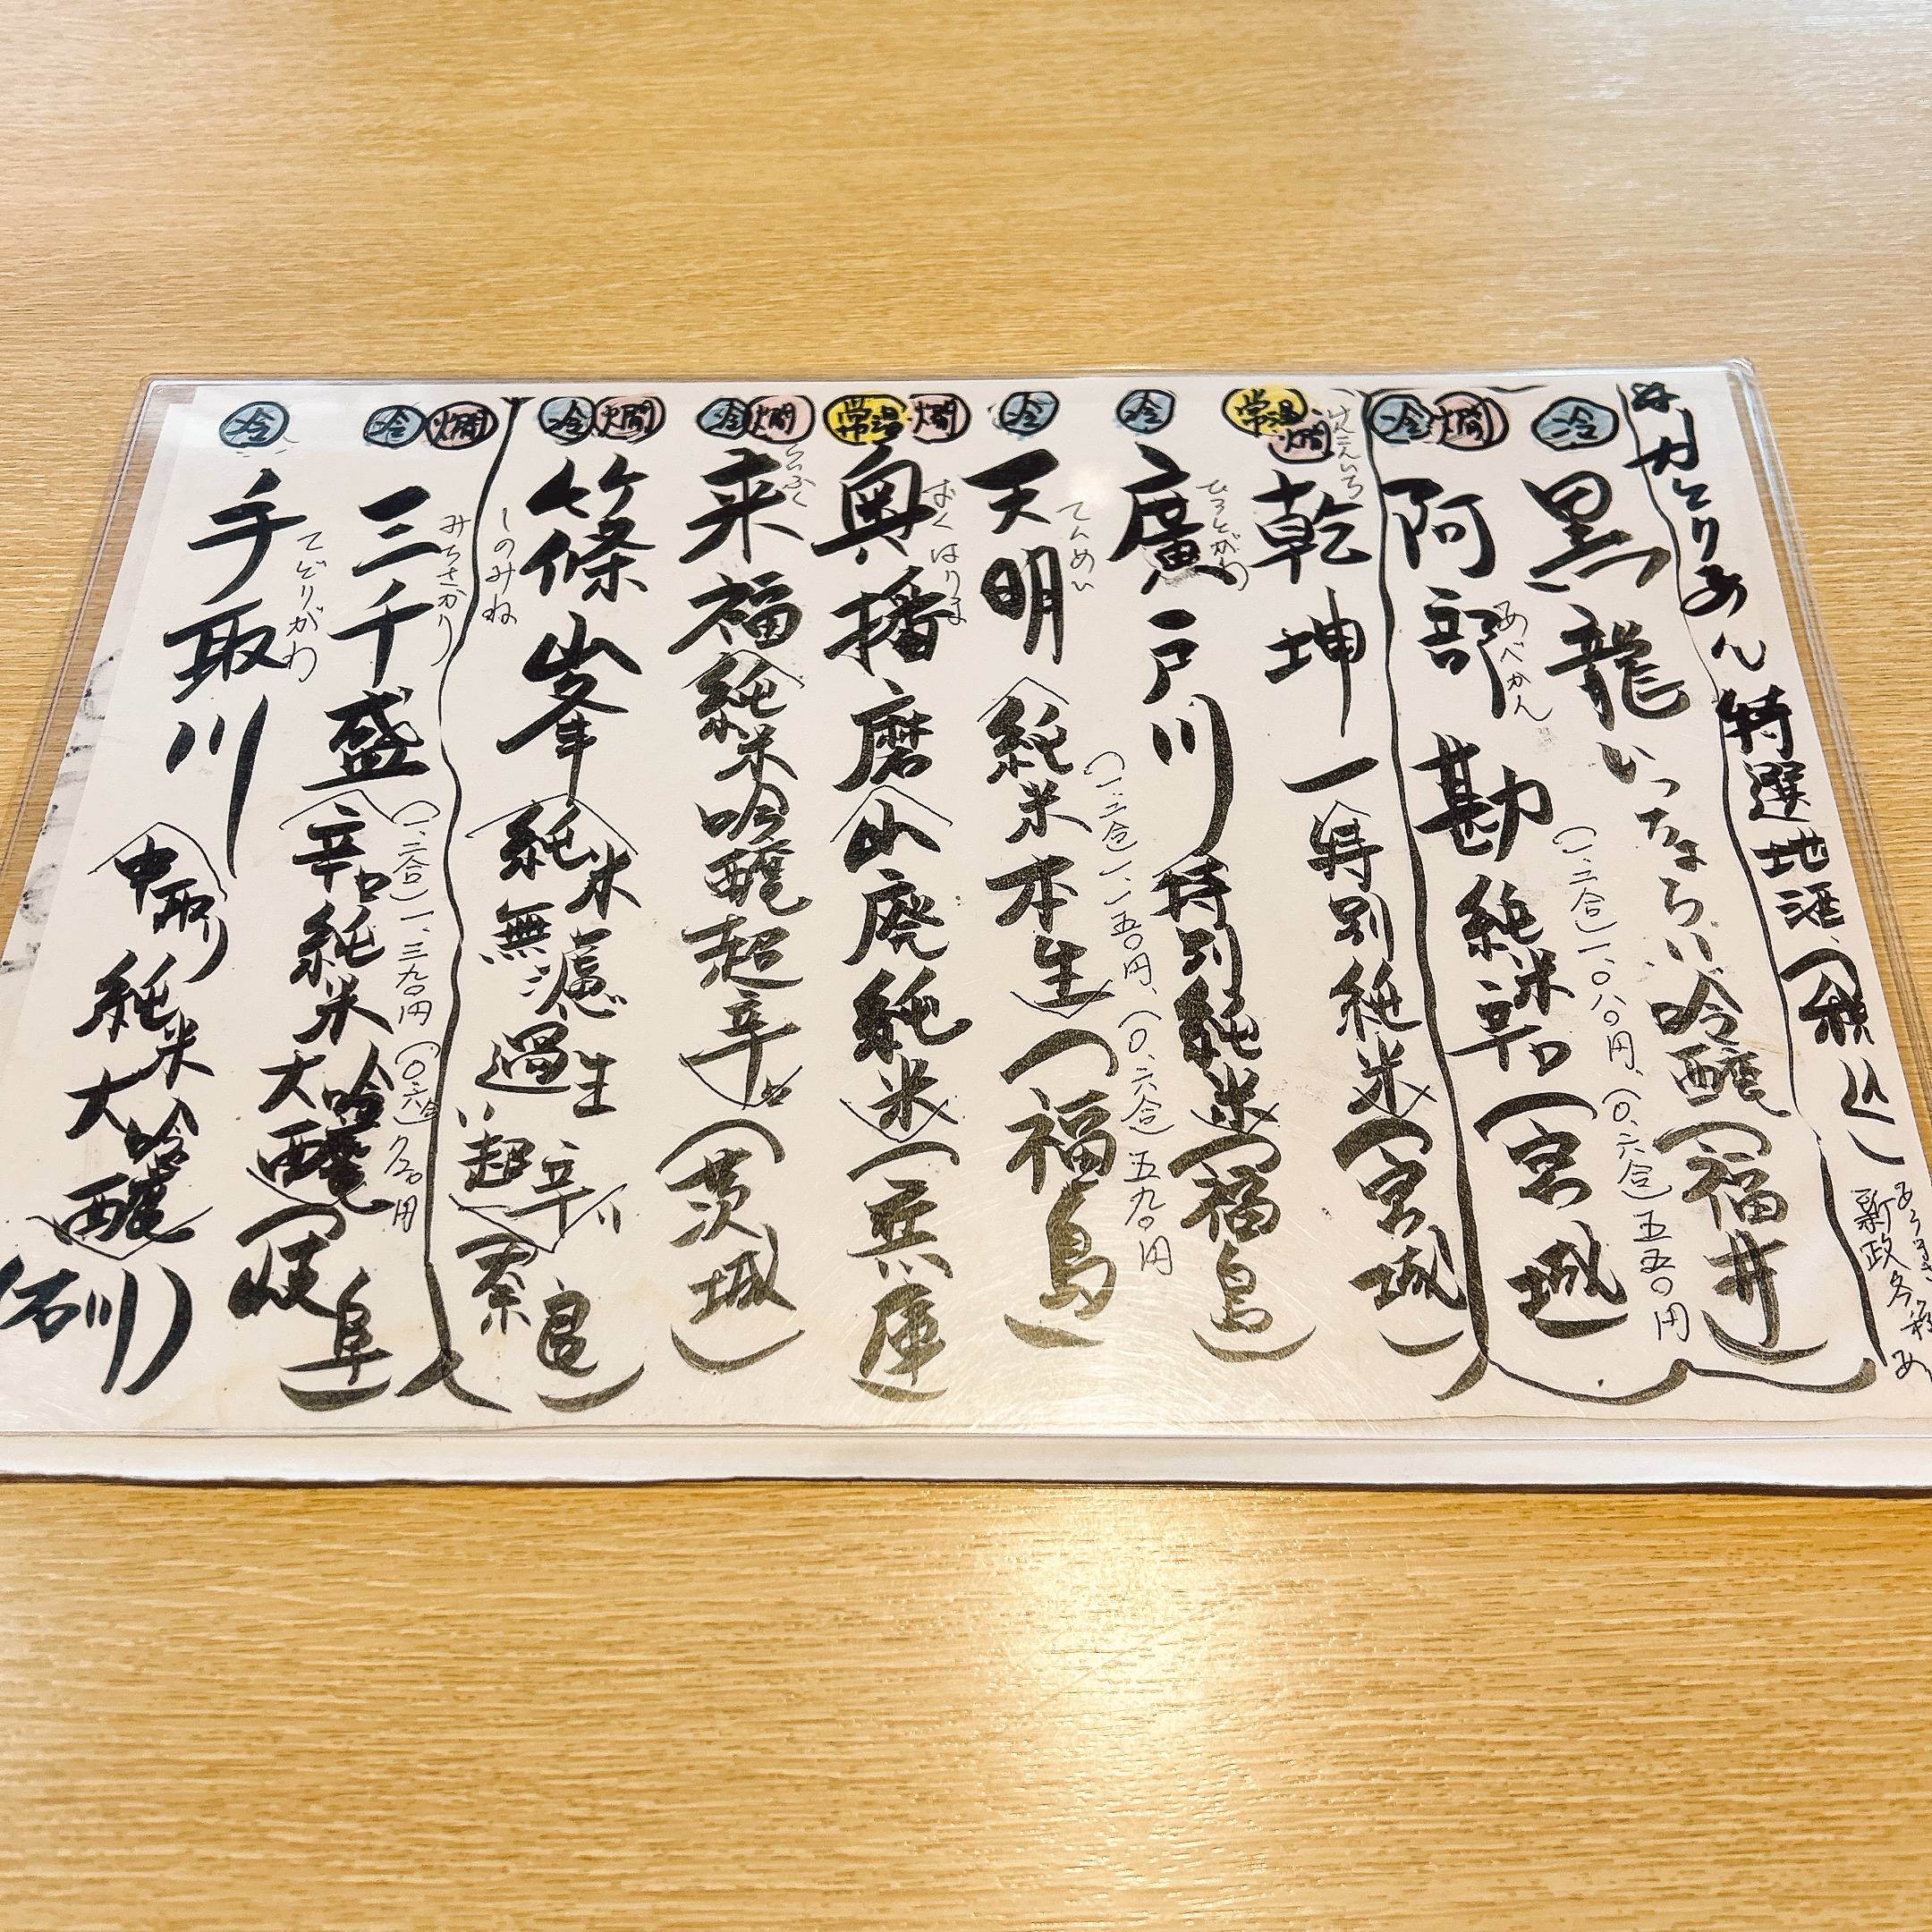 特選地酒(税込)
新政各種あ
冷
黒龍 いっちょらい 吟醸(福井)
(一、二合)一、〇八〇円、(〇、六合)五五〇円
冷 燗
阿部勘 純米辛口(宮城)
あべかん
常温 燗
乾坤一(特別純米)(宮城)
冷
廣戸川 特別純米(福島)
ひろとがわ
(一、二合)一、一五〇円、(〇、六合)五九〇円
冷
天明(純米本生)(福島)
てんめい
常温 燗
奥播磨(山廃純米)(兵庫)
おくはりま
冷 燗
来福(純米吟醸超辛口)(茨城)
らいふく
冷 燗
篠峯(純米無濾過生"超辛")(奈良)
しのみね
(一、二合)一、三九〇円(〇、六合)
冷 燗
三千盛(辛口純米大吟醸)(岐阜)
みちさかり
冷
手取川(中取り純米大吟醸)(石川)
てどりがわ